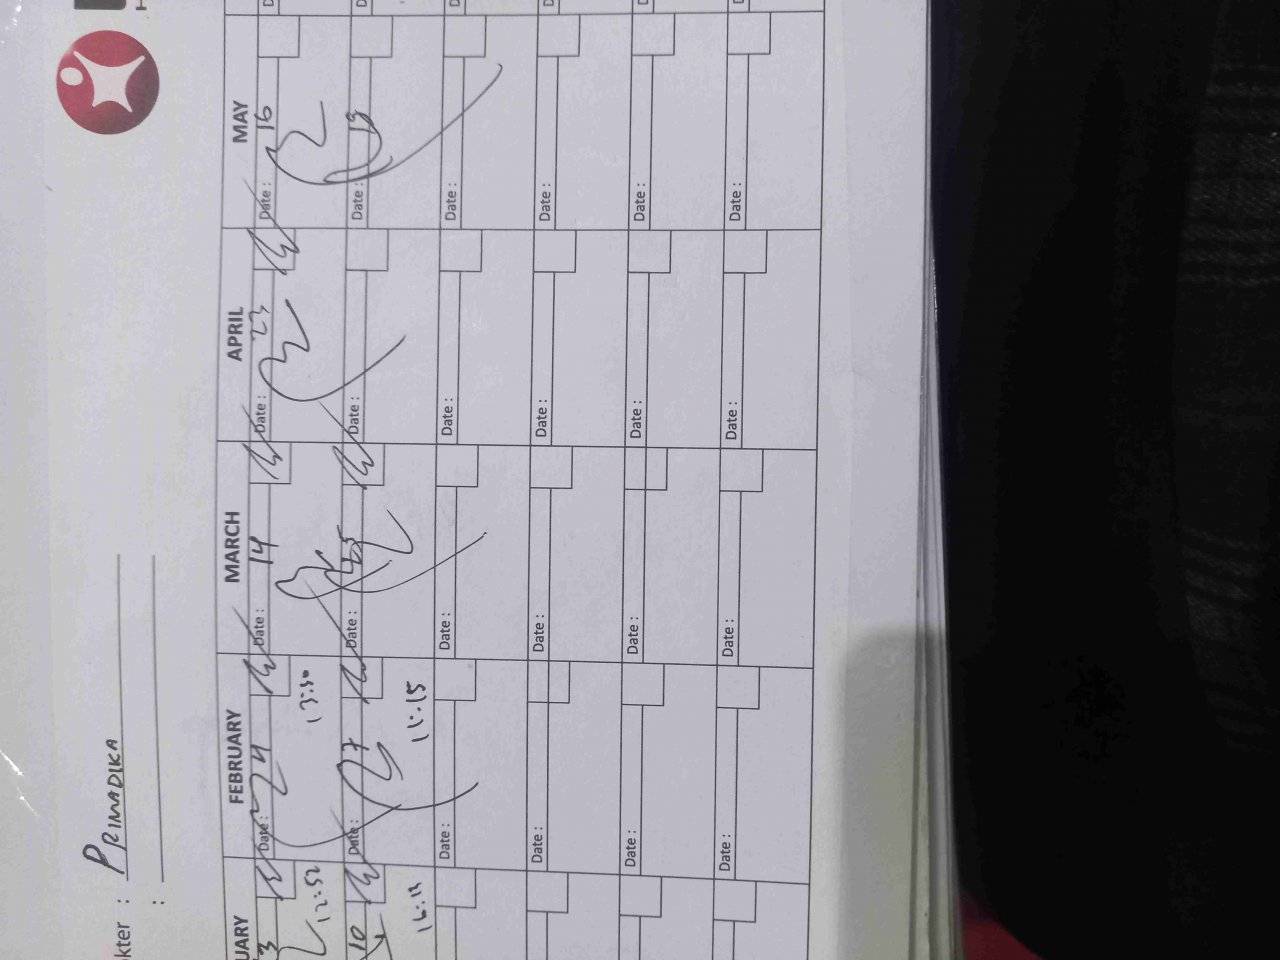 kter : PRIMADIKA
:
UARY FEBRUARY MARCH APRIL MAY
3 Date : 4 Date : 14 Date : 23 Date : 16
12:52 13:30
10 Date : 7 Date : Date : Date : 19
11:15
Date : Date : Date : Date :
Date : Date : Date : Date :
Date : Date : Date : Date :
Date : Date : Date : Date :